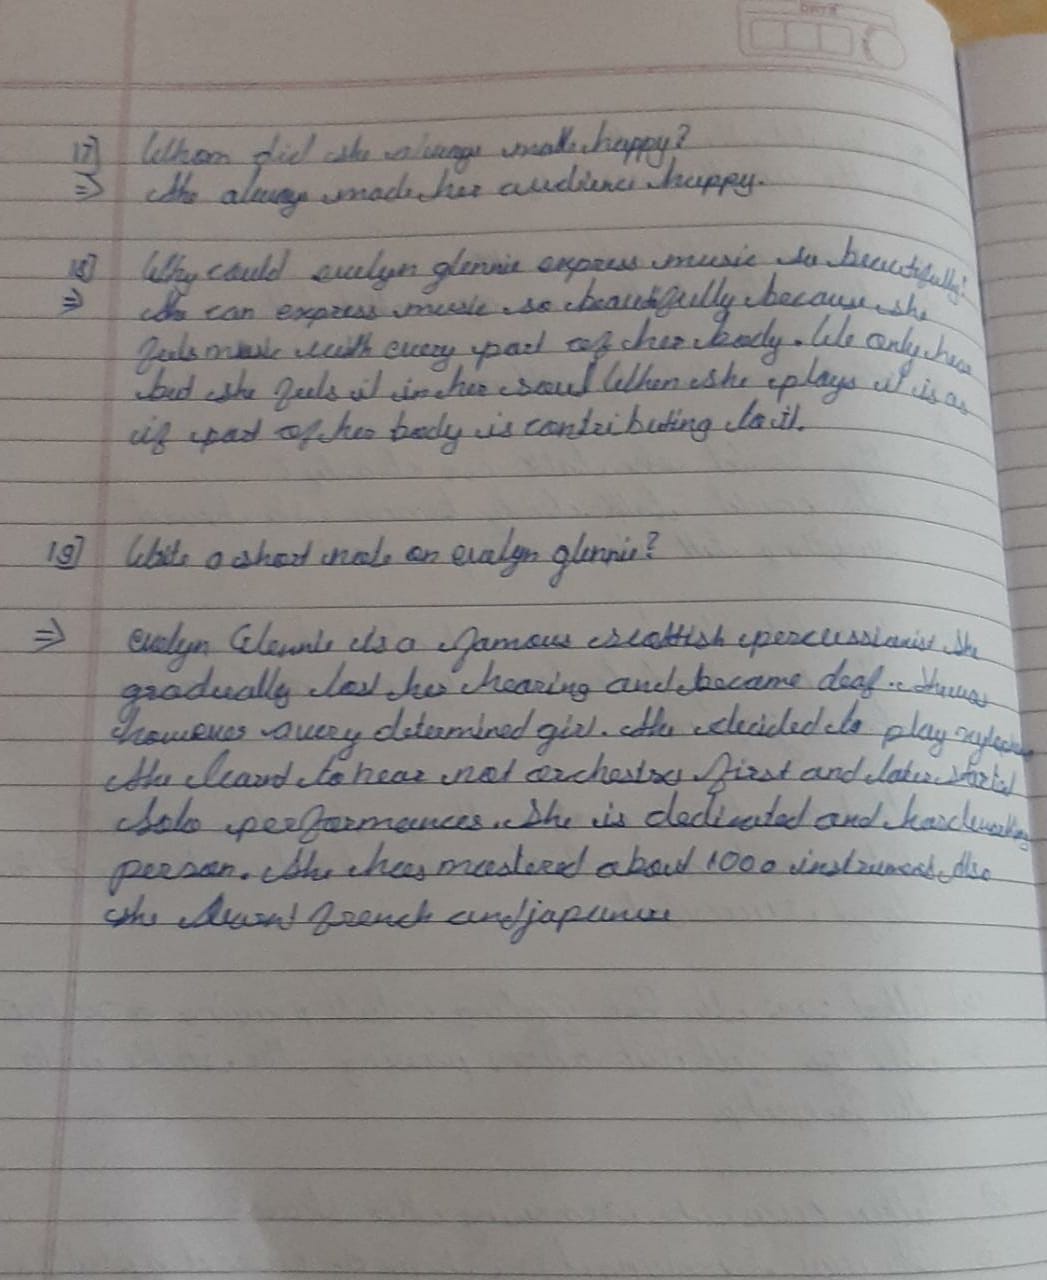 DATE
17] Whom did she always make happy?
⇒ She always made her audience happy.
18] Why could evelyn glennie express music so beautifully?
⇒ She can express music so beautifully because she
feels music with every part of her body. We only hear
but she feels it in her soul When she plays it is as
if part of her body is contributing to it.
19] Write a short note on evelyn glennie?
⇒ evelyn Glennie is a famous scottish percussionist She
gradually lost her hearing and became deaf. She was
however a very determined girl. She decided to play
She to hear not orchestra first and later started
Solo performances. She is dedicated and hardworking
person. She has mastered about 1000 instrument. Also
she learnt french and japanese